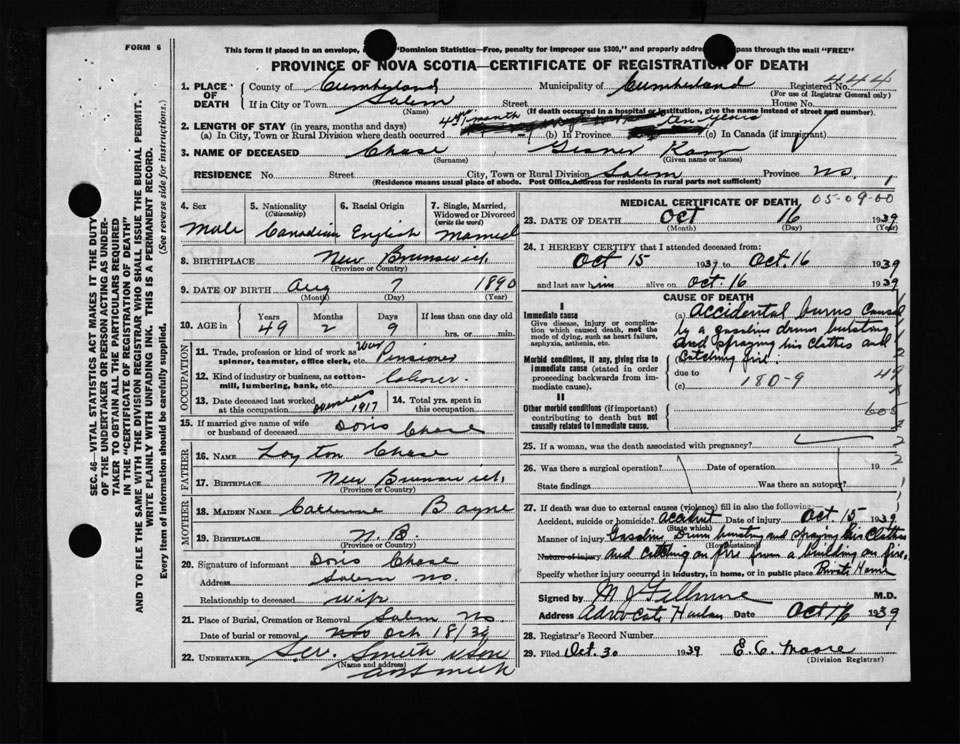 FORM 6
This form if placed in an envelope, "Dominion Statistics—Free, penalty for improper use $300," and properly addre pass through the mail "FREE"
PROVINCE OF NOVA SCOTIA—CERTIFICATE OF REGISTRATION OF DEATH
1. PLACE OF DEATH County of Cumberland Municipality of Cumberland Registered No. 444
(For use of Registrar General only)
If in City or Town Salem Street House No.
(Name) (If death occurred in a hospital or institution, give the name instead of street and number).
2. LENGTH OF STAY (in years, months and days)
(a) In City, Town or Rural Division where death occurred month (b) In Province ten years (c) In Canada (if immigrant)
3. NAME OF DECEASED Chase
(Surname) (Given name or names)
RESIDENCE No. Street City, Town or Rural Division Salem Province NS. 1
(Residence means usual place of abode. Post Office Address for residents in rural parts not sufficient)
4. Sex Male
5. Nationality (Citizenship) Canadian
6. Racial Origin English
7. Single, Married, Widowed or Divorced (write the word) Married
8. BIRTHPLACE New Brunswick
(Province or Country)
9. DATE OF BIRTH Aug 7 1890
(Month) (Day) (Year)
10. AGE in Years 49 Months 2 Days 9 If less than one day old hrs. or min.
OCCUPATION
11. Trade, profession or kind of work as spinner, teamster, office clerk, etc. War Pensioner
12. Kind of industry or business, as cotton-mill, lumbering, bank, etc. Laborer.
13. Date deceased last worked at this occupation overseas 1917
14. Total yrs. spent in this occupation
15. If married give name of wife or husband of deceased Doris Chase
FATHER
16. NAME Layton Chase
17. BIRTHPLACE New Brunswick,
(Province or Country)
MOTHER
18. MAIDEN NAME Catherine Bayne
19. BIRTHPLACE N.B.
(Province or Country)
20. Signature of informant Doris Chase
Address Salem NS.
Relationship to deceased wife
21. Place of Burial, Cremation or Removal Salem NS
Date of burial or removal Nov Oct 18/39
22. UNDERTAKER Smith & Son
(Name and address)
MEDICAL CERTIFICATE OF DEATH 05-09-00
23. DATE OF DEATH Oct 16 1939
(Month) (Day) (Year)
24. I HEREBY CERTIFY that I attended deceased from:
Oct 15 1939 to Oct. 16 1939
and last saw him alive on Oct. 16 1939
CAUSE OF DEATH
I
Immediate cause
Give disease, injury or complication which caused death, not the mode of dying, such as heart failure, asphyxia, asthenia, etc.
(a) Accidental burns caused by a gasoline drum bursting and spraying his clothes and catching fire.
Morbid conditions, if any, giving rise to immediate cause (stated in order proceeding backwards from immediate cause).
due to
180-9
(c)
II
Other morbid conditions (if important) contributing to death but not causally related to immediate cause.
25. If a woman, was the death associated with pregnancy?
26. Was there a surgical operation? Date of operation 19
State findings Was there an autopsy?
27. If death was due to external causes (violence) fill in also the following:
Accident, suicide or homicide? accident Date of injury Oct. 15 1939
(State which)
Manner of injury Gasoline Drum bursting and spraying his clothes
(How sustained)
Nature of injury and catching on fire from a building on fire.
Specify whether injury occurred in industry, in home, or in public place Private Home
Signed by M J Fillmore M.D.
Address Advocate Harbor Date Oct 16 1939
28. Registrar's Record Number
29. Filed Oct. 30 1939 E. C. Moore
(Division Registrar)
SEC. 46—VITAL STATISTICS ACT MAKES IT THE DUTY
OF THE UNDERTAKER OR PERSON ACTING AS UNDERTAKER TO OBTAIN ALL THE PARTICULARS REQUIRED
IN THE "CERTIFICATE OF REGISTRATION OF DEATH"
AND TO FILE THE SAME WITH THE DIVISION REGISTRAR WHO SHALL ISSUE THE BURIAL PERMIT.
WRITE PLAINLY WITH UNFADING INK. THIS IS A PERMANENT RECORD.
Every item of information should be carefully supplied. (See reverse side for instructions.)